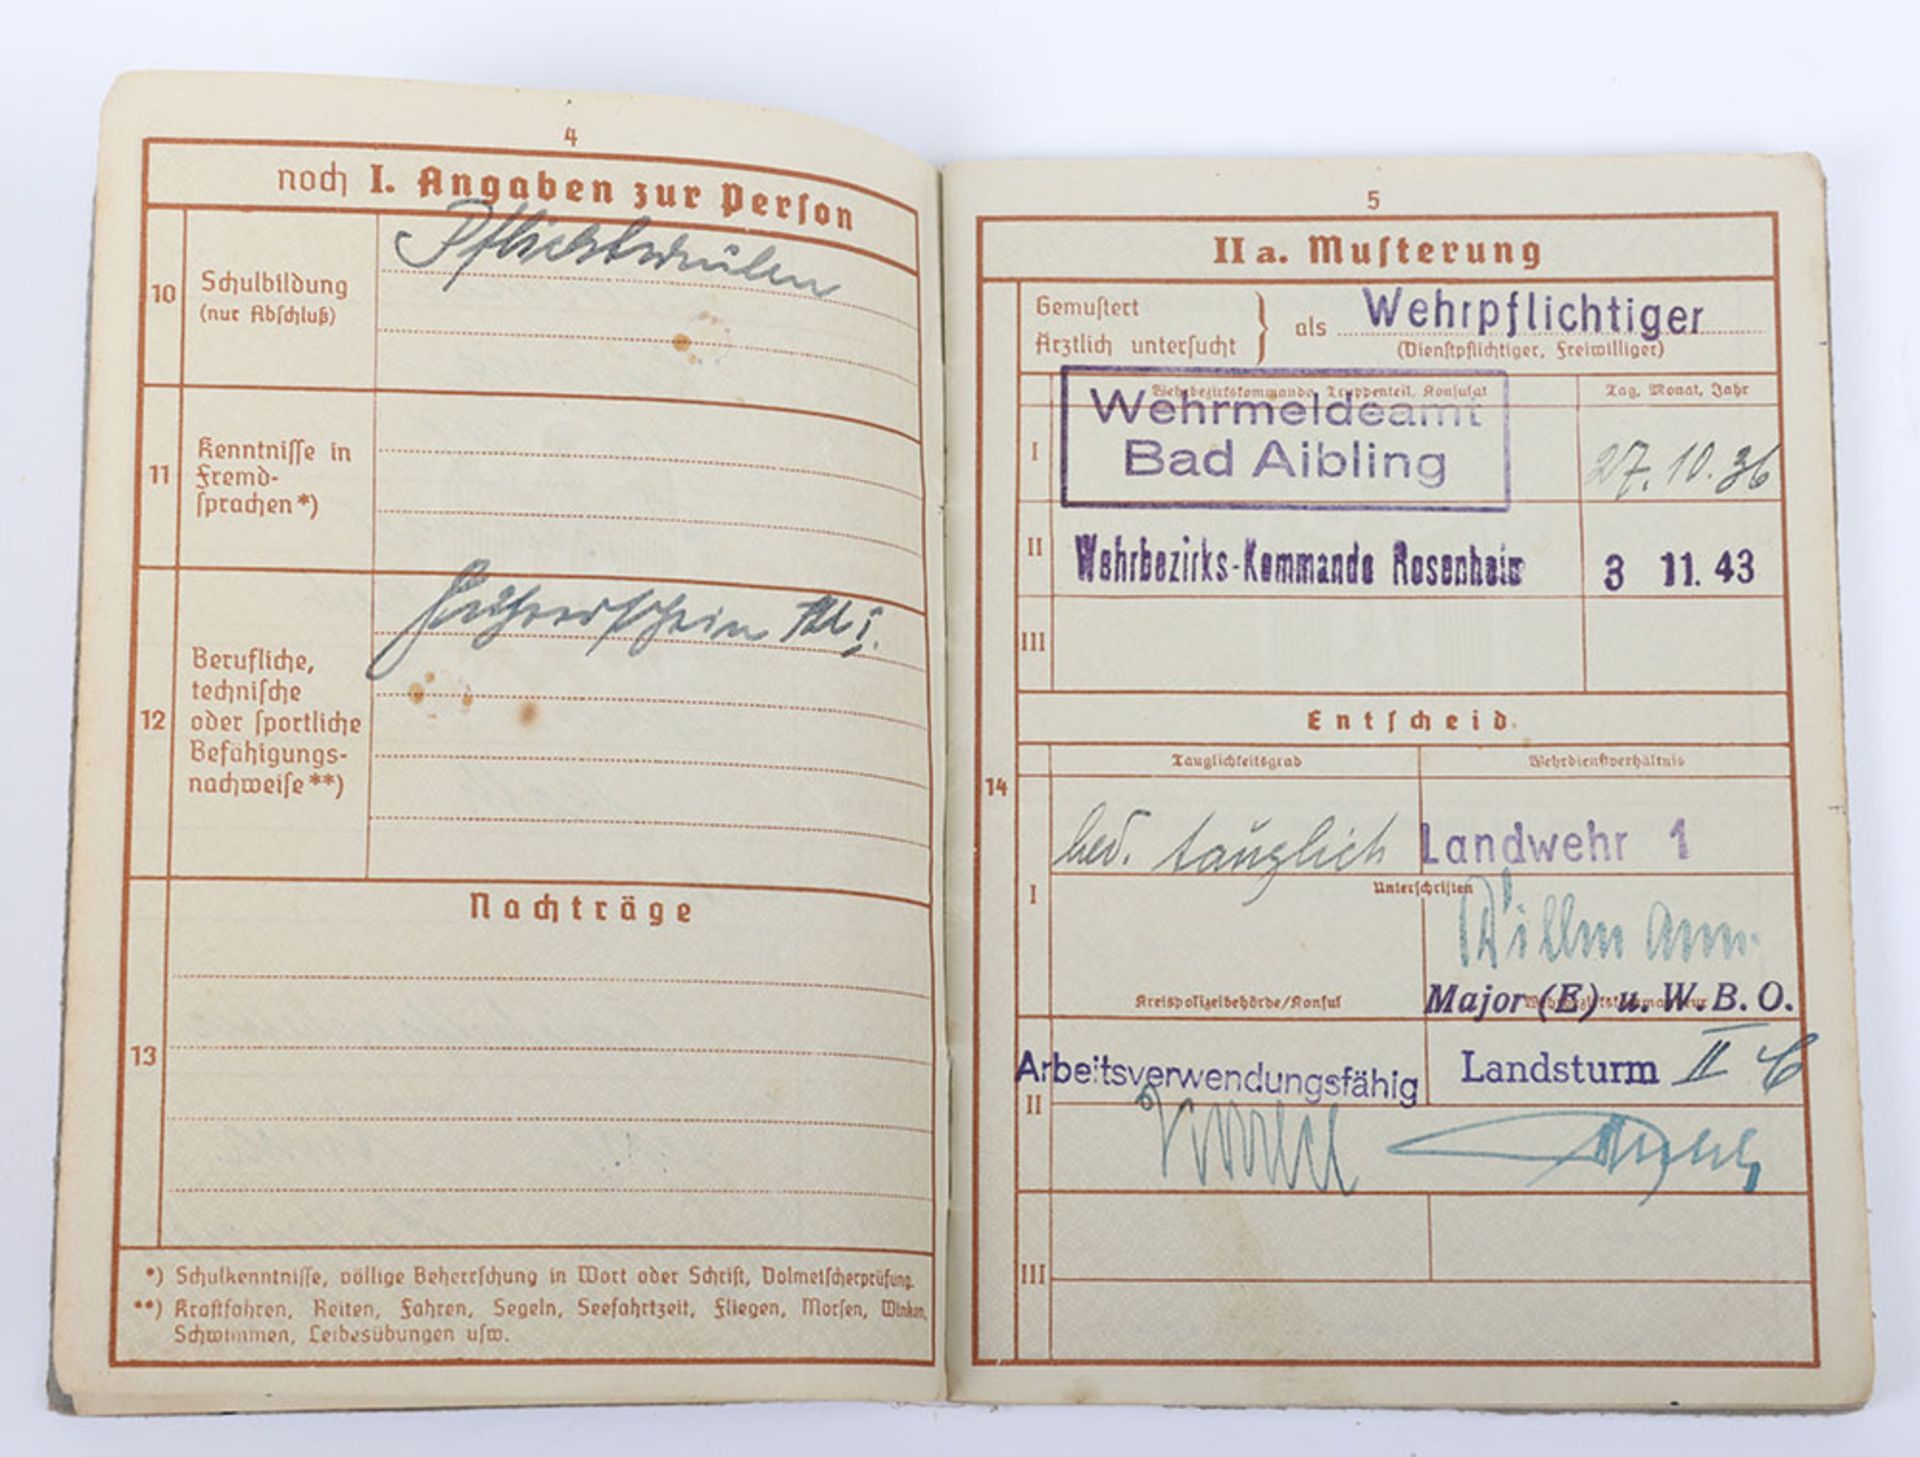 4
noch I. Angaben zur Person
10
Schulbildung
(nur Abschluß)
11
Kenntnisse in
Fremd-
sprachen *)
12
Berufliche,
technische
oder sportliche
Befähigungs-
nachweise **)
Führerschein Kl I.
Nachträge
13
*) Schulkenntnisse, völlige Beherrschung in Wort oder Schrift, Dolmetscherprüfung.
**) Kraftfahren, Reiten, Fahren, Segeln, Seefahrtzeit, Fliegen, Morsen, Winken,
Schwimmen, Leibesübungen usw.
5
II a. Musterung
Gemustert
Ärztlich untersucht } als Wehrpflichtiger
(Dienstpflichtiger, Freiwilliger)
Wehrbezirkskommando, Truppenteil, Konsulat
Tag, Monat, Jahr
I
Wehrmeldeamt
Bad Aibling
27.10.36
II
Wehrbezirks-Kommando Rosenheim
3 11. 43
III
Entscheid
Tauglichkeitsgrad
Wehrdienstverhältnis
14
bed. tauglich
Landwehr 1
I
Unterschriften
Kreispolizeibehörde/Konsul
Major (E) u. W. B. O.
Arbeitsverwendungsfähig
Landsturm II
II
III